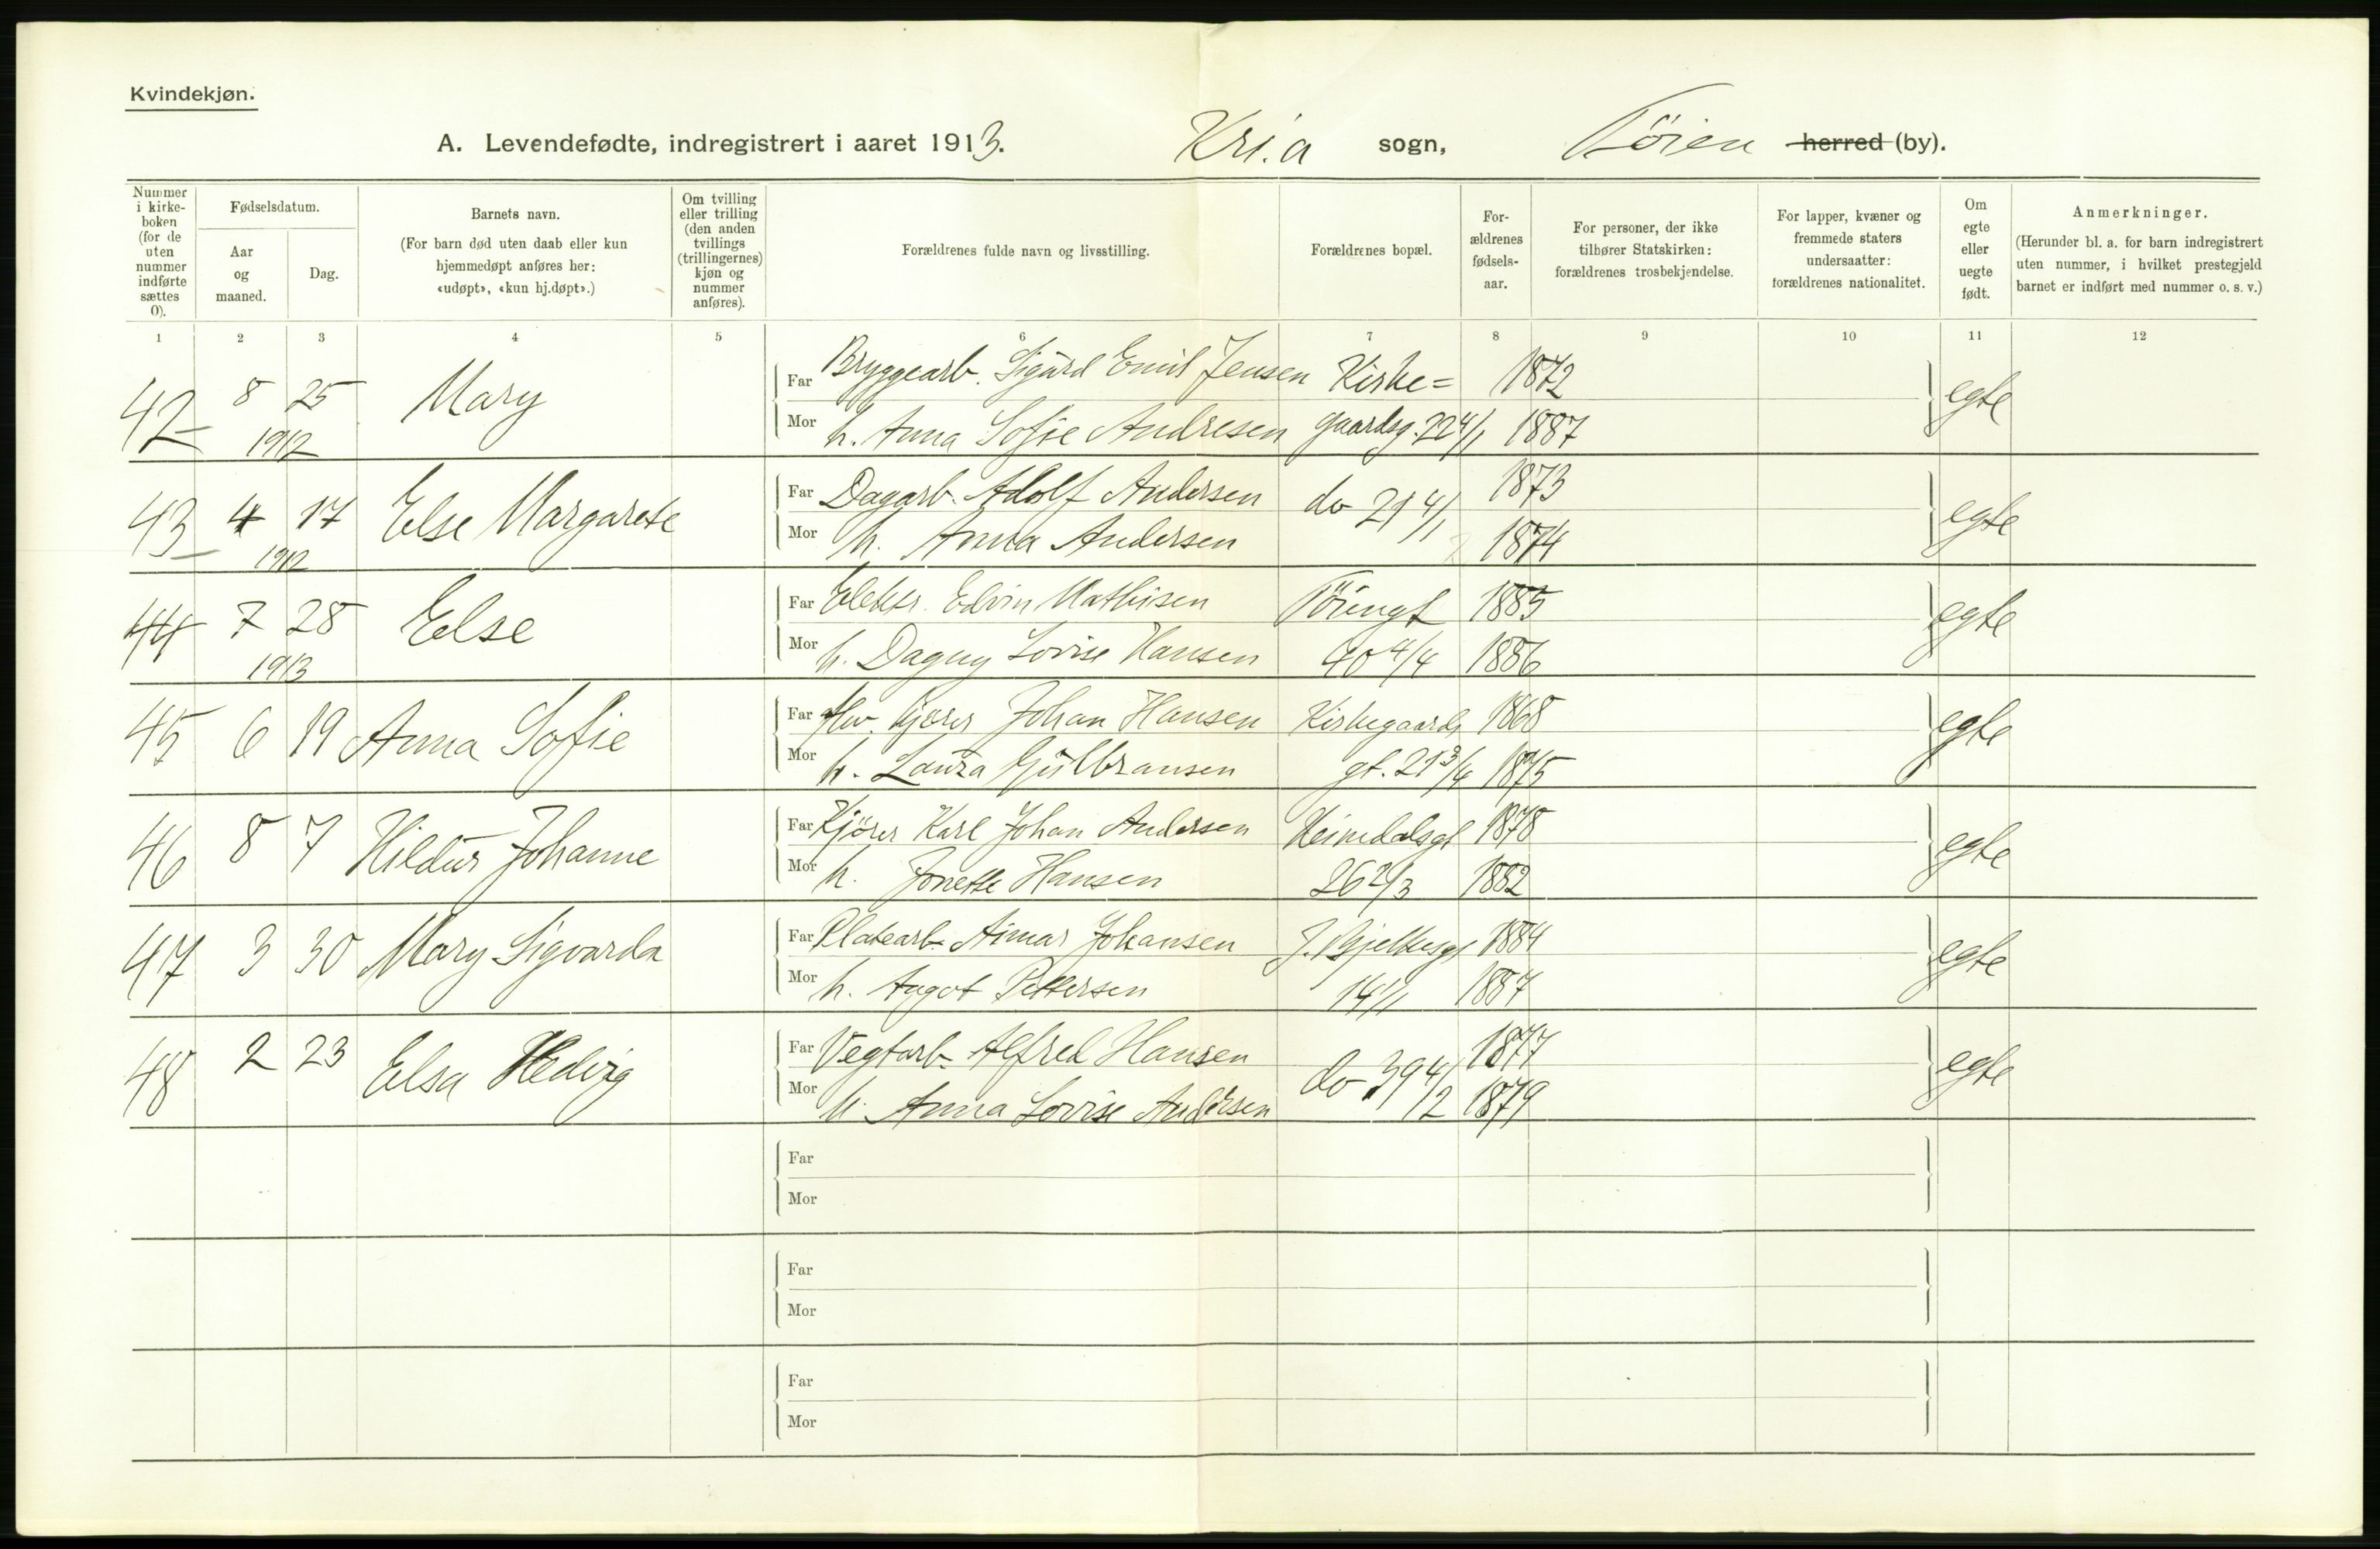 Kvindekjøn.
A. Levendefødte, indregistrert i aaret 1913. Kri.a sogn, Töien herred (by).
Nummer i kirke-boken (for de uten nummer indførte sættes 0).
Fødselsdatum.
Aar og maaned.
Dag.
Barnets navn.
(For barn død uten daab eller kun hjemmedøpt anføres her: «udøpt», «kun hj.døpt».)
Om tvilling eller trilling (den anden tvillings (trillingernes) kjøn og nummer anføres).
Forældrenes fulde navn og livsstilling.
Forældrenes bopæl.
For-ældrenes fødsels-aar.
For personer, der ikke tilhører Statskirken: forældrenes trosbekjendelse.
For lapper, kvæner og fremmede staters undersaatter: forældrenes nationalitet.
Om egte eller uegte født.
Anmerkninger.
(Herunder bl. a. for barn indregistrert uten nummer, i hvilket prestegjeld barnet er indført med nummer o. s. v.)
1 2 3 4 5 6 7 8 9 10 11 12
42 8 25 Mary Far Bryggearb. Sigurd Emil Jensen Kirke= 1872 egte
1912 Mor h. Anna Sofie Andresen gaardsg. 22 4/1 1887
43 4 17 Else Margarete Far Dagarb. Adolf Andersen do 21 4/1 1873 egte
1912 Mor h. Anna Andersen 1874
44 7 28 Else Far Elektr. Edvin Mathisen Töiengt 1885 egte
1913 Mor h. Dagny Lovise Hansen 40 4/4 1886
45 6 19 Anna Sofie Far Kjörer Johan Hansen Kirkegaards 1868 egte
Mor h. Laura Gulbransen gt. 21 3/4 1875
46 8 7 Hildur Johanne Far Kjörer Karl Johan Andersen Heimdalsgt 1878 egte
Mor h. Jonette Hansen 26 2/3 1882
47 3 30 Mary Sigvarda Far Platearb. Aimar Johansen J. Bjelkesgt 1884 egte
Mor h. Aagot Pettersen 14 1/1 1887
48 2 23 Elsa Hedvig Far Vegtarb. Alfred Hansen do 39 4/2 1877 egte
Mor h. Anna Lovise Andersen 1879
Far
Mor
Far
Mor
Far
Mor